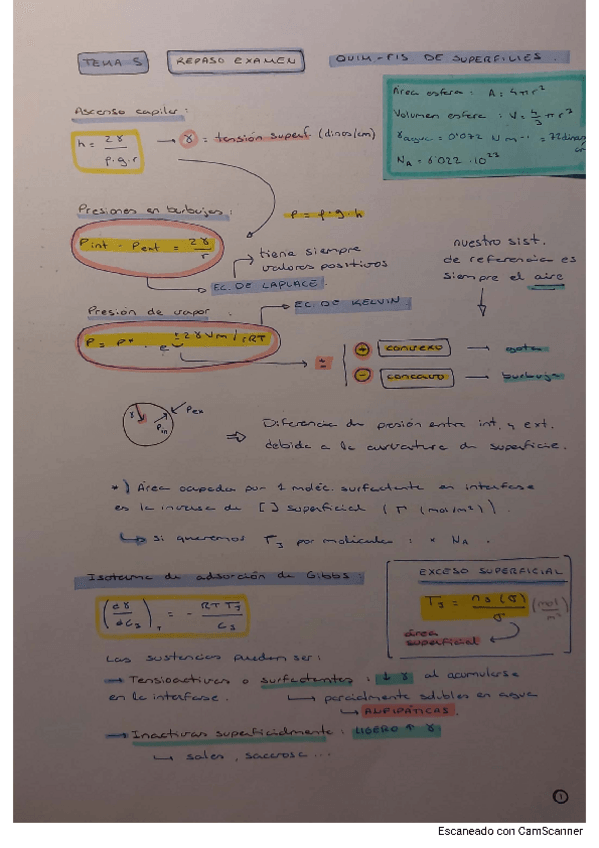 TEMA 5 REPASO EXAMEN QUIM-FIS DE SUPERFICIES.
Área esfera: A = 4πr²
Volumen esfera: V = 4/3 πr³
γagua = 0'072 N m⁻¹ = 72 dinas/cm
NA = 6'022 · 10²³
Ascenso capilar:
h = 2γ / ρ·g·r → γ = tensión superf (dinas/cm)
Presiones en burbujas:
P = ρ·g·h
Pint - Pext = 2γ / r
→ tiene siempre
valores positivos
→ EC. DE LAPLACE
nuestro sist.
de referencia es
siempre el aire
Presión de vapor
→ EC. DE KELVIN
P = P* · e^(±2γVm / rRT)
→ ±
+ convexo → gota
- concavo → burbuja
γ Pin Pex
⇒ Diferencia de presión entre int. y ext.
debida a la curvatura de superficie.
*) Área ocupada por 1 moléc. surfactante en interfase
es la inversa de [ ] superficial (Γ (mol/m²)).
↳ si queremos Γ₃ por molécula: × NA.
Isoterma de adsorción de Gibbs:
(dγ / dC₃)T = - RT Γ₃ / C₃
EXCESO SUPERFICIAL
Γ₃ = n₃(σ) / σ (mol/m²)
área
superficial
Las sustancias pueden ser:
→ Tensioactivas o surfactantes: ↓ γ al acumularse
en la interfase. ↳ parcialmente solubles en agua
↳ ANFIPÁTICAS.
→ Inactivas superficialmente: LIGERO ↑ γ
↳ sales, sacarosa...
1
Escaneado con CamScanner